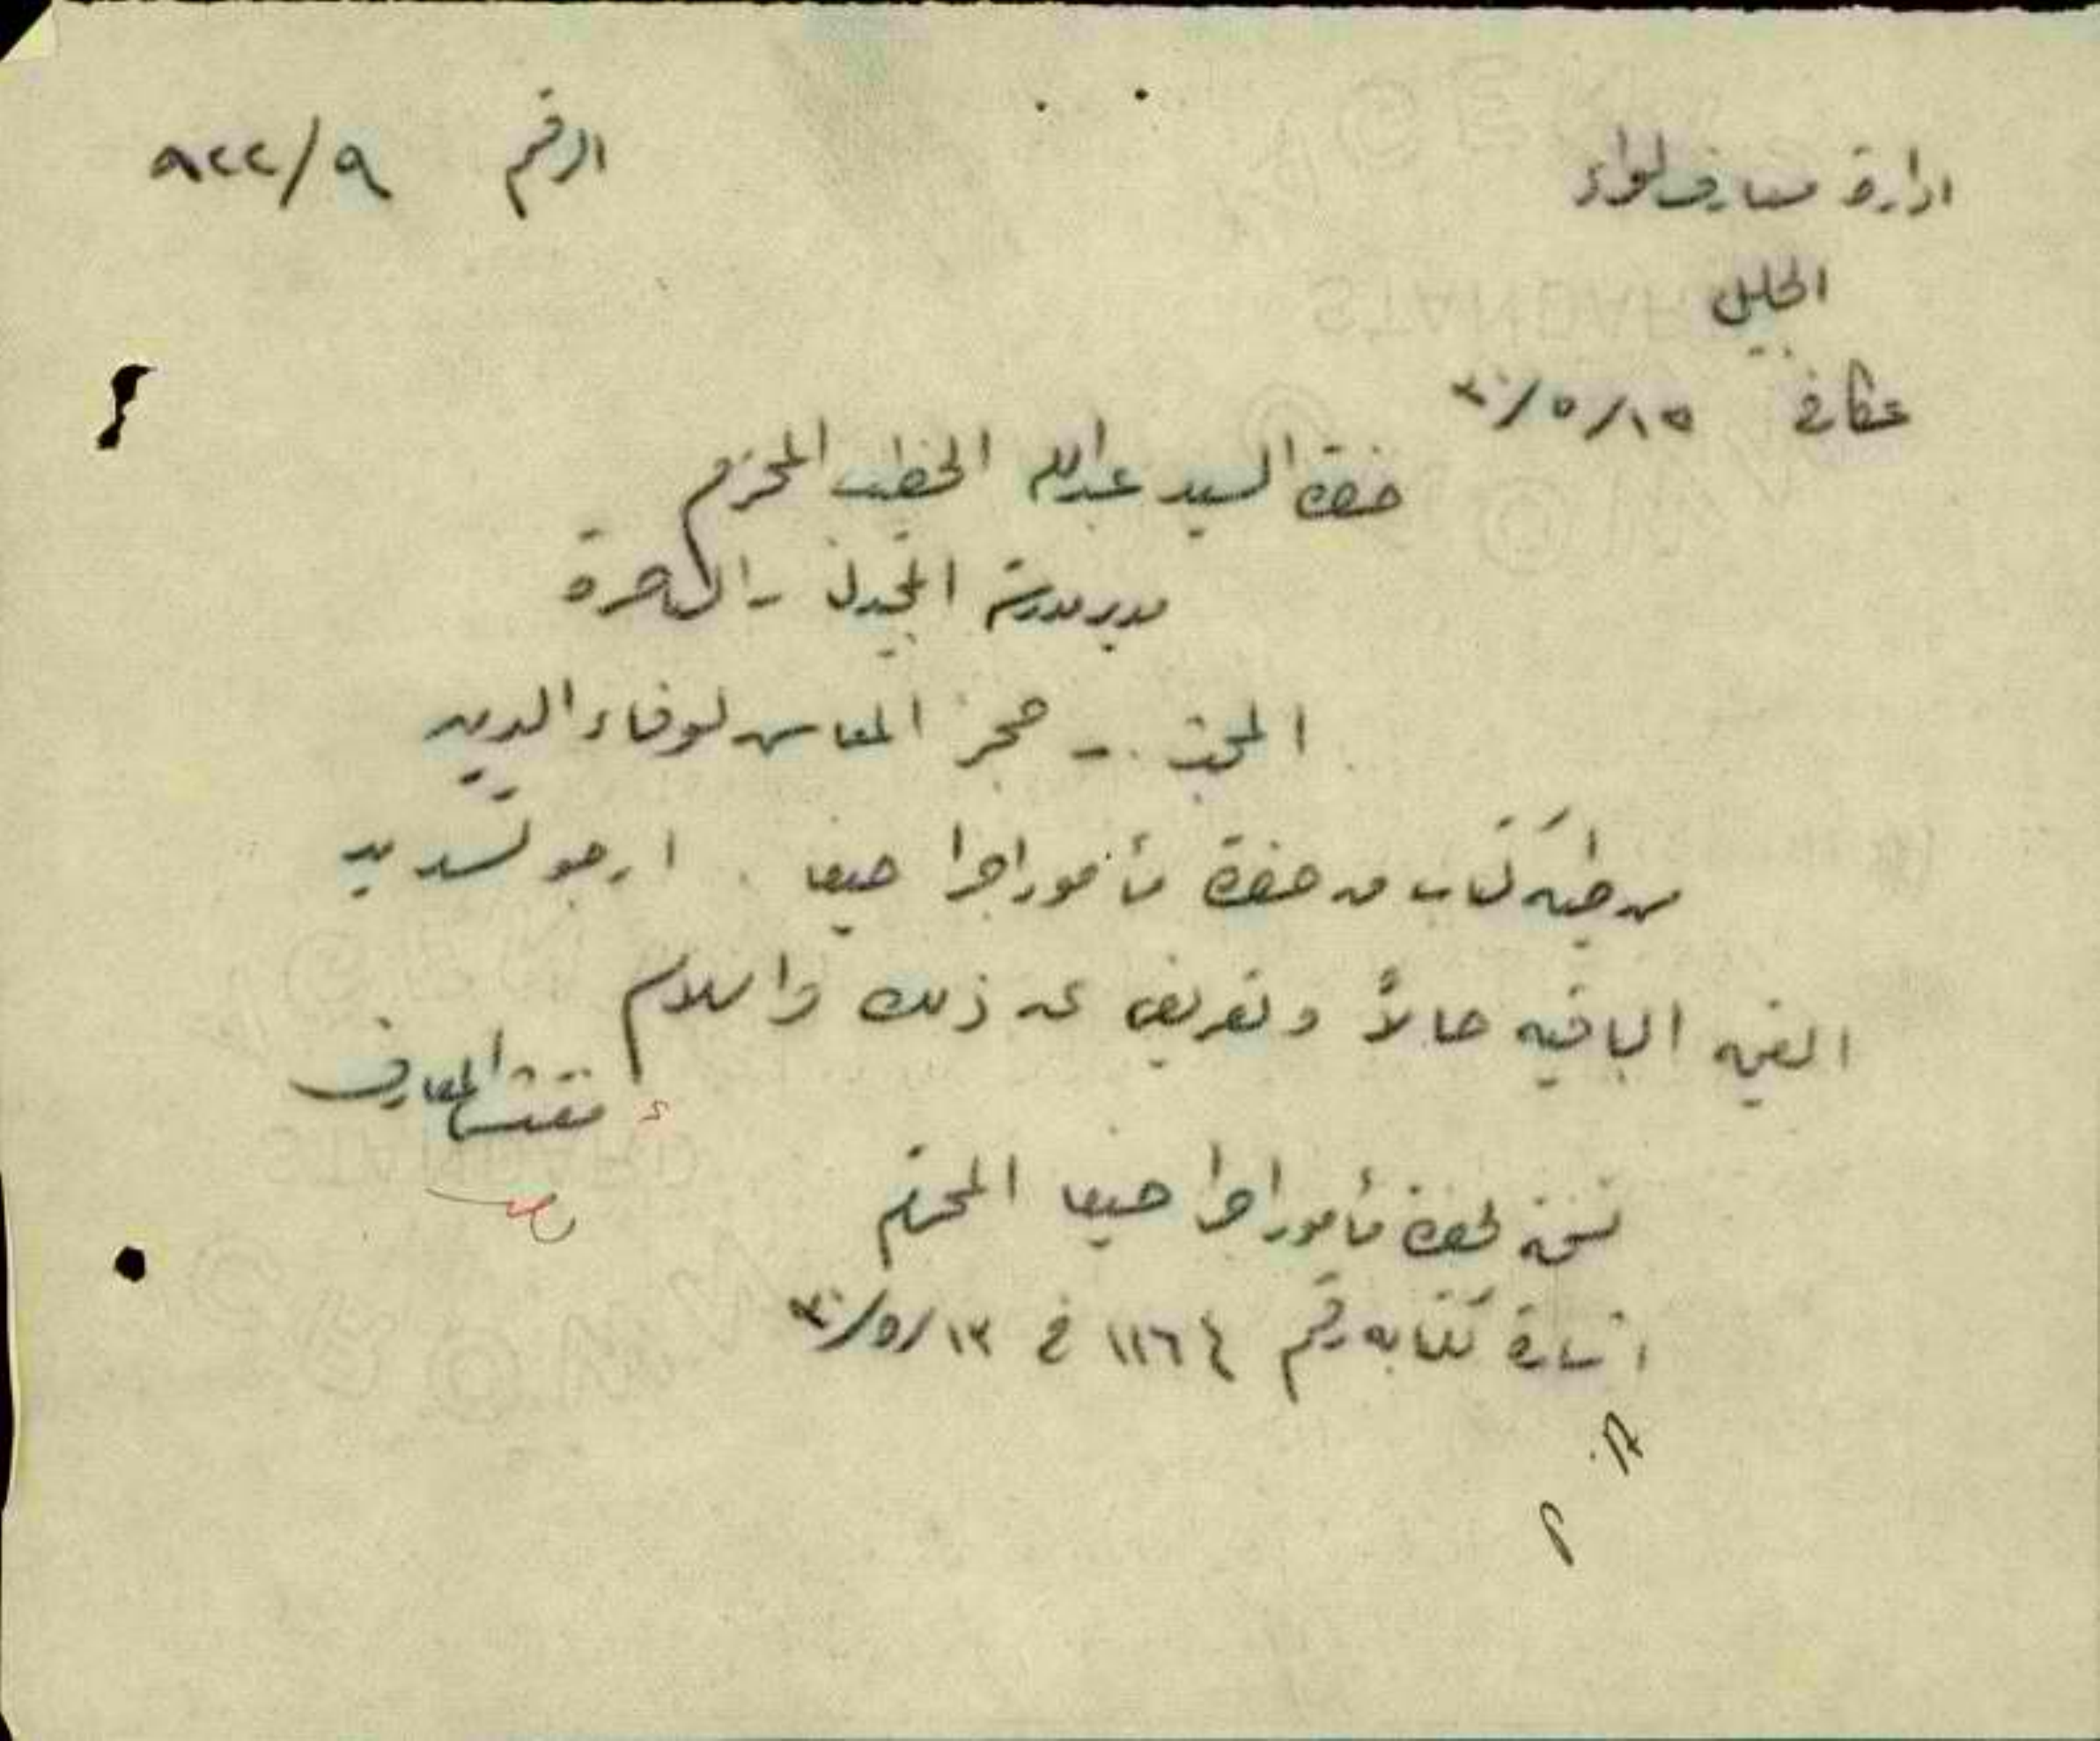 ادارة معارف لواء
الجليل
الرقم ٩/٩٢٢
عكا في ١٥/٥/٣٠
حضرة السيد عبدالله الخطيب المحترم
مدير مدرسة المجيدل - الناصرة
المبحث .- حجز المعاش لوفاء الدين
من طيه كتاب من حضرة مأمور اجرا حيفا . ارجو تسديد
القيمه الباقيه حالاً وتعريفي عن ذلك والسلام
مفتش المعارف
نسخة لحضرة مأمور اجرا حيفا المحترم
اشارة لكتابه رقم ١١٦٤ في ١٣/٥/٣٠